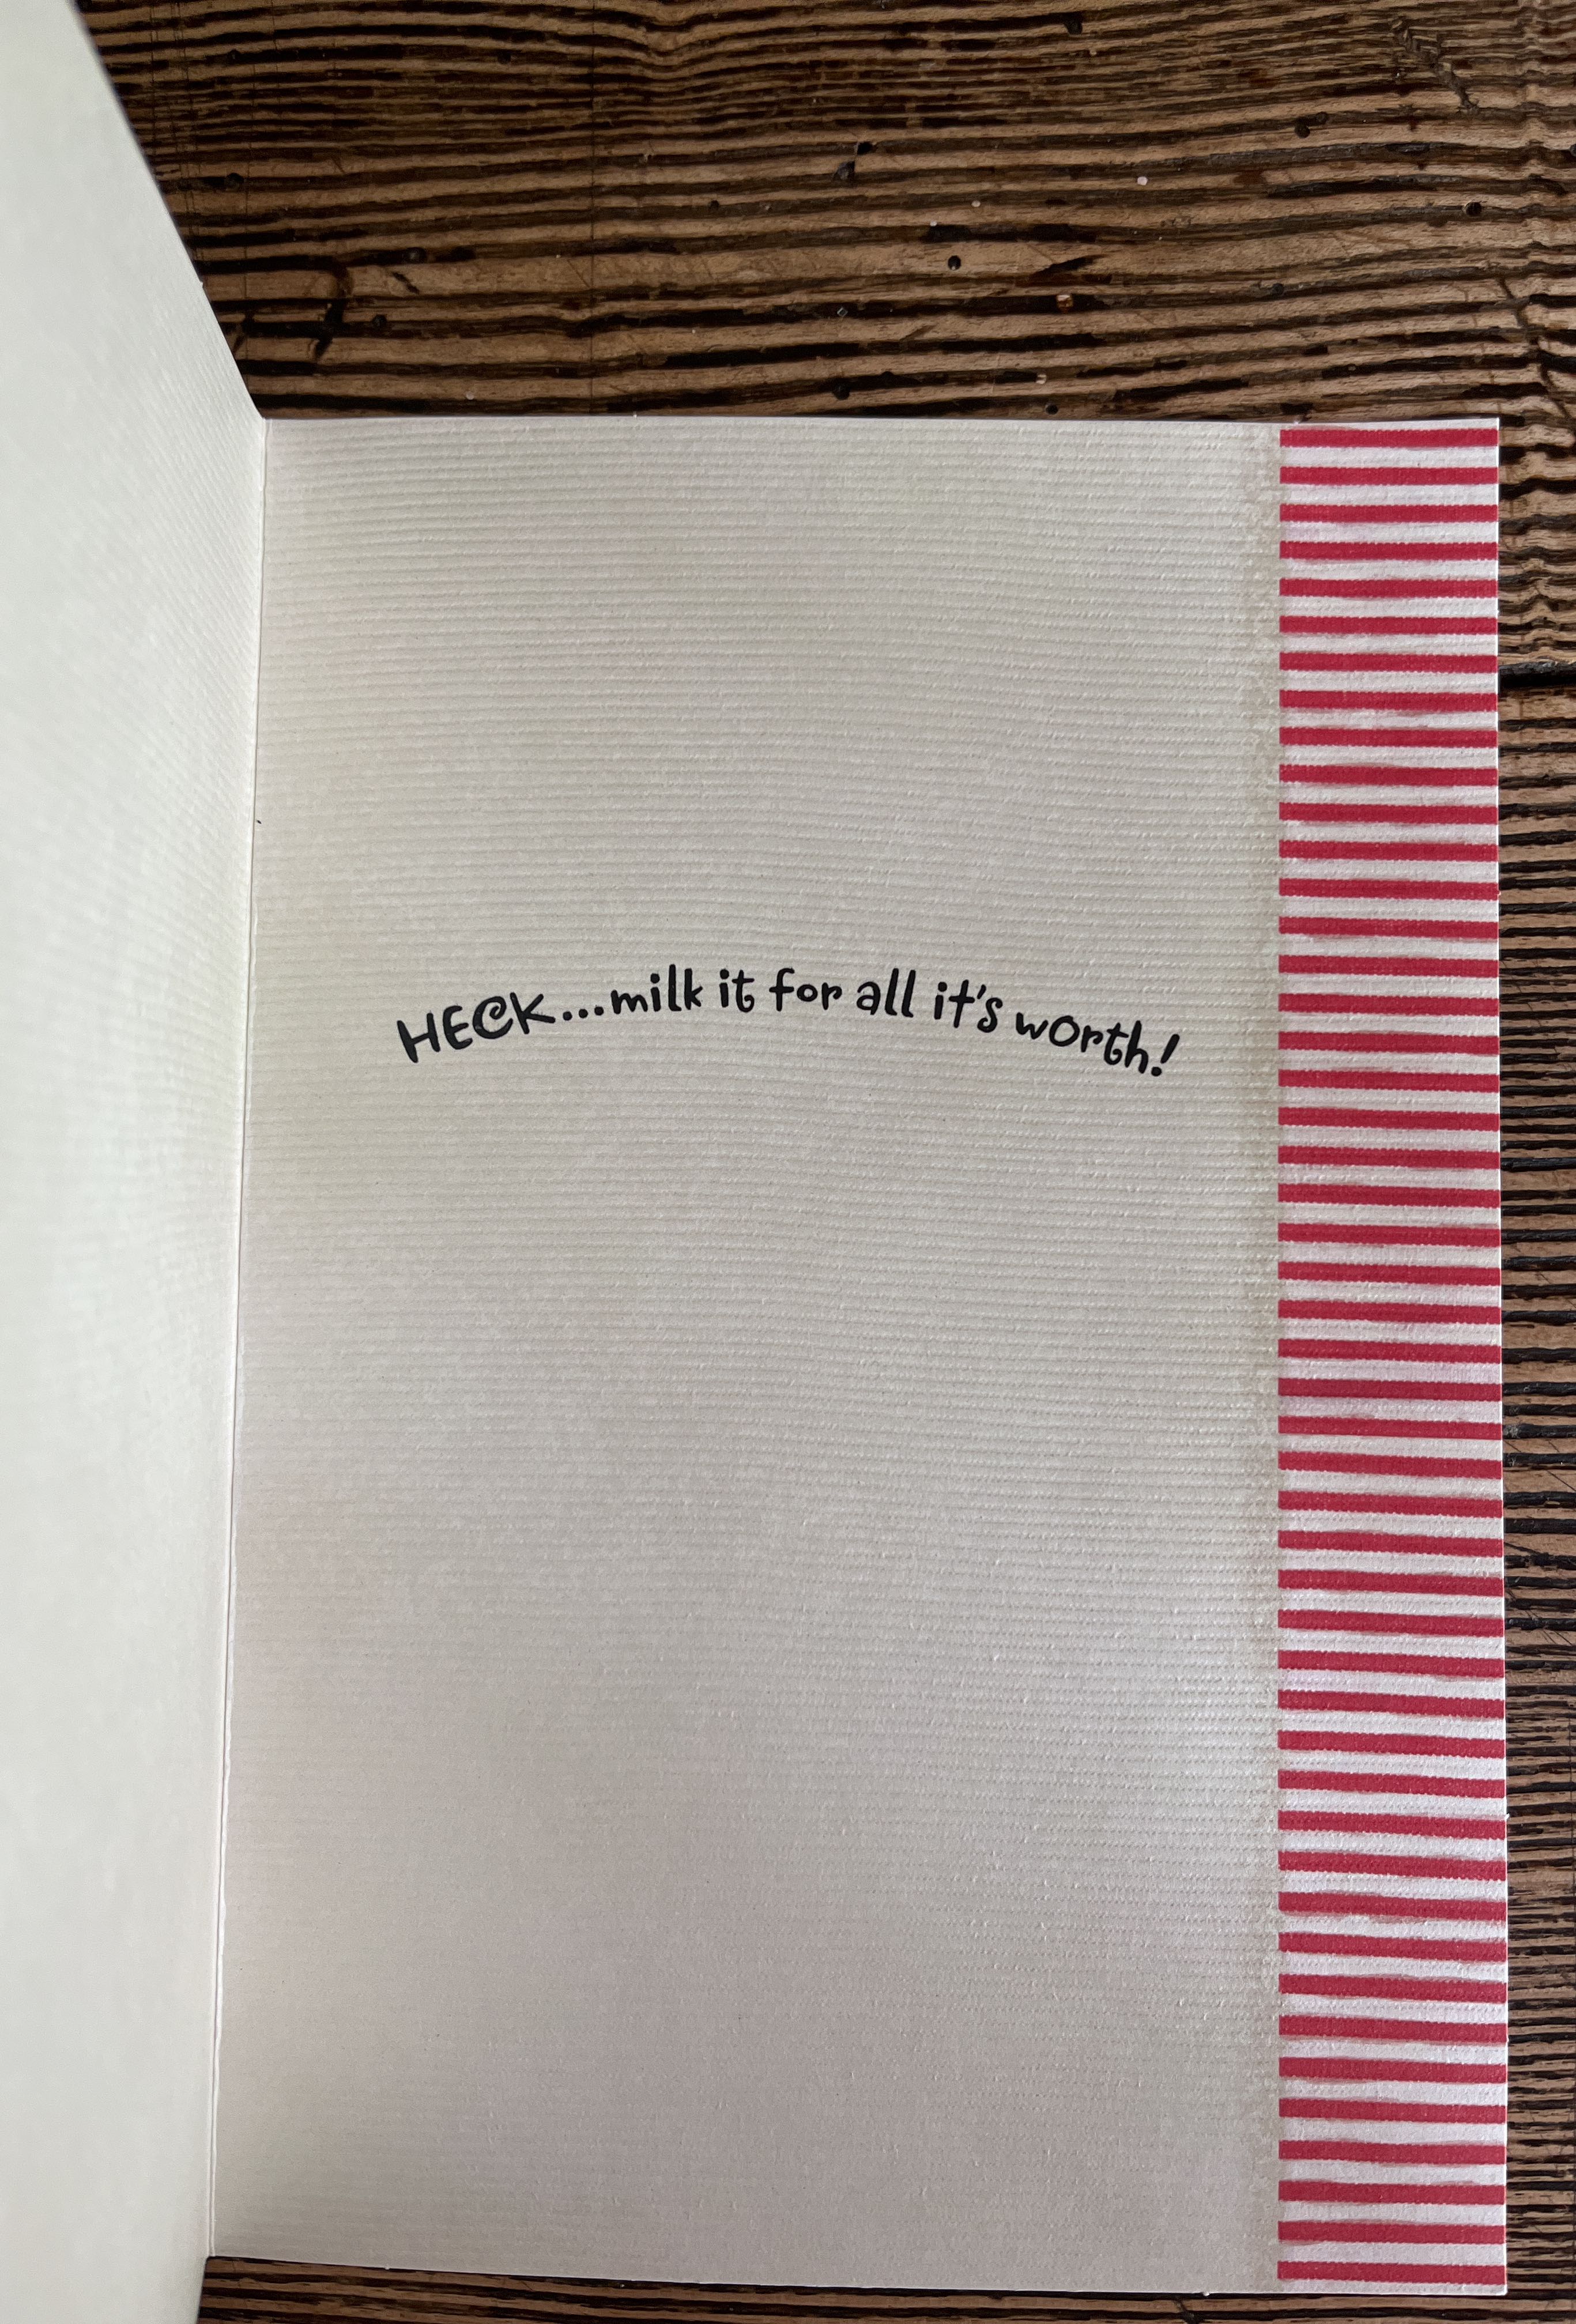 HECK...milk it for all it's worth!